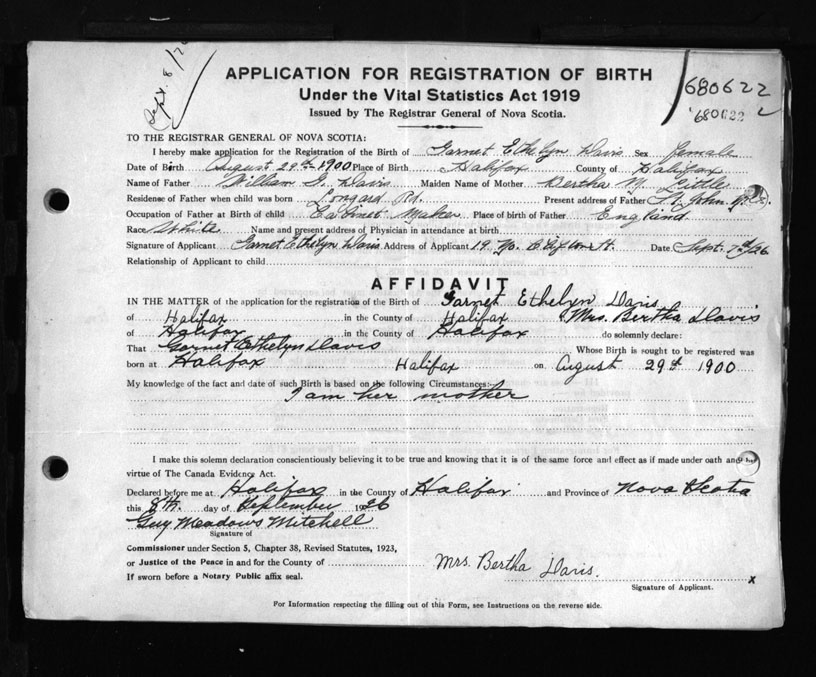 Sept. 8/26
APPLICATION FOR REGISTRATION OF BIRTH
680622
Under the Vital Statistics Act 1919
680622
Issued by The Registrar General of Nova Scotia.
TO THE REGISTRAR GENERAL OF NOVA SCOTIA:
I hereby make application for the Registration of the Birth of Garnet Ethelyn Davis Sex female
Date of Birth August 29th 1900 Place of Birth Halifax County of Halifax
Name of Father William G. Davis Maiden Name of Mother Bertha M. Little
Residence of Father when child was born Longard Rd. Present address of Father St. John
Occupation of Father at Birth of child Cabinet Maker Place of birth of Father England
Race White Name and present address of Physician in attendance at birth
Signature of Applicant Garnet Ethelyn Davis Address of Applicant 19 Clifton St. Date Sept. 7th/26
Relationship of Applicant to child
AFFIDAVIT
IN THE MATTER of the application for the registration of the Birth of Garnet Ethelyn Davis
of Halifax in the County of Halifax Mrs. Bertha Davis
of Halifax in the County of Halifax do solemnly declare:
That Garnet Ethelyn Davis Whose Birth is sought to be registered was
born at Halifax Halifax on August 29th 1900
My knowledge of the fact and date of such Birth is based on the following Circumstances:-
I am her mother
I make this solemn declaration conscientiously believing it to be true and knowing that it is of the same force and effect as if made under oath and by
virtue of The Canada Evidence Act.
Declared before me at Halifax in the County of Halifax and Province of Nova Scotia
this 8th. day of September 1926
Guy Meadows Mitchell
Signature of
Commissioner under Section 5, Chapter 38, Revised Statutes, 1923,
or Justice of the Peace in and for the County of
Mrs. Bertha Davis. x
If sworn before a Notary Public affix seal.
Signature of Applicant.
For Information respecting the filling out of this Form, see Instructions on the reverse side.